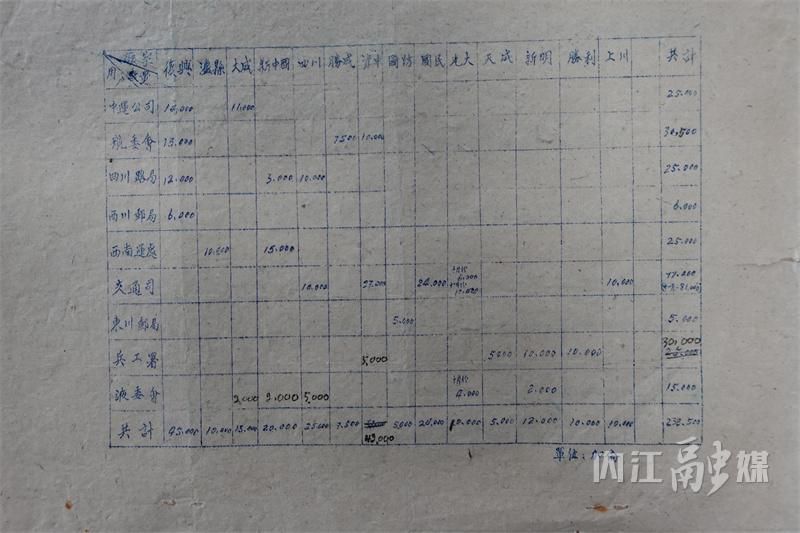 廠家 復興 瀘縣 大成 新中國 四川 勝成 滬東 國防 國民 光大 天成 新明 勝利 上川 共計
用户 數量
中運公司 11,000 25.000
航委會 13.000 7500 10.000 30,500
四川路局 12.000 3.000 10.000 25.000
西川郵局 6,000 6.000
西南運處 10.000 15.000 25.000
交通司 10.000 27.000 24.000 10.000
東川郵局 5.000 5.000
兵工署 5,000 5000 10.000 10.000 30,000
液委會 2,000 5,000 2.000 15.000
共計 45.000 10.000 13.000 20.000 25000 7.500 42,000 5,000 24,000 10.000 5.000 12.000 10.000 10.000 232.500
單位：加侖
内江融媒